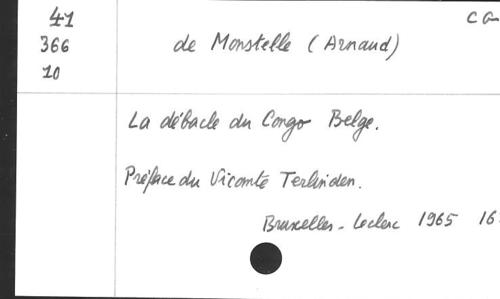 41
366
10
C G
de Monstelle (Arnaud)
La débacle du Congo Belge.
Préface du Vicomte Terlinden.
Bruxelles - Leclerc 1965 16